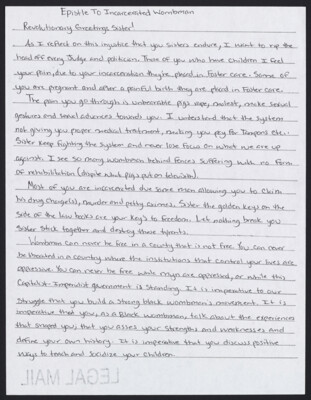 Epistle To Incarcerated Wombman
Revolutionary Greetings Sister!
As I reflect on this injustice that you sisters endure, I want to rip the
head off every Judge and politician. Those of you who have children I feel
your pain, due to your incarceration they're placed in Foster care. Some of
you are pregnant and after a painful birth they are placed in Foster care.
The pain you go through is unbearable, pigs rape, molest, make sexual
gestures and sexual advances towards you. I understand that the system
not giving you proper medical treatment, making you pay for Tampons etc.
Sister keep fighting the system and never lose focus on what we are up
against. I see so many wombman behind fences suffering with no form
of rehabilitation (despite what pigs put on television).
Most of you are incarcerated due some man allowing you to claim
his drug charge(s), murder and petty crimes. Sister the golden keys on the
side of the law books are your key's to freedom. Let nothing break you
sister stick together and destroy those tyrants.
Wombman can never be free in a country that is not free. You can never
be liberated in a country where the institutions that control your lives are
oppressive. You can never be free while men are oppressed, or while this
Capitalist-Imperialist government is standing. It is imperative to our
struggle that you build a strong black wombman's movement. It is
imperative that you, as a Black wombman, talk about the experiences
that shaped you; that you asses your strengths and weaknesses and
define your own history. It is imperative that you discuss positive
ways to teach and socialize your children.
LEGAL MAIL